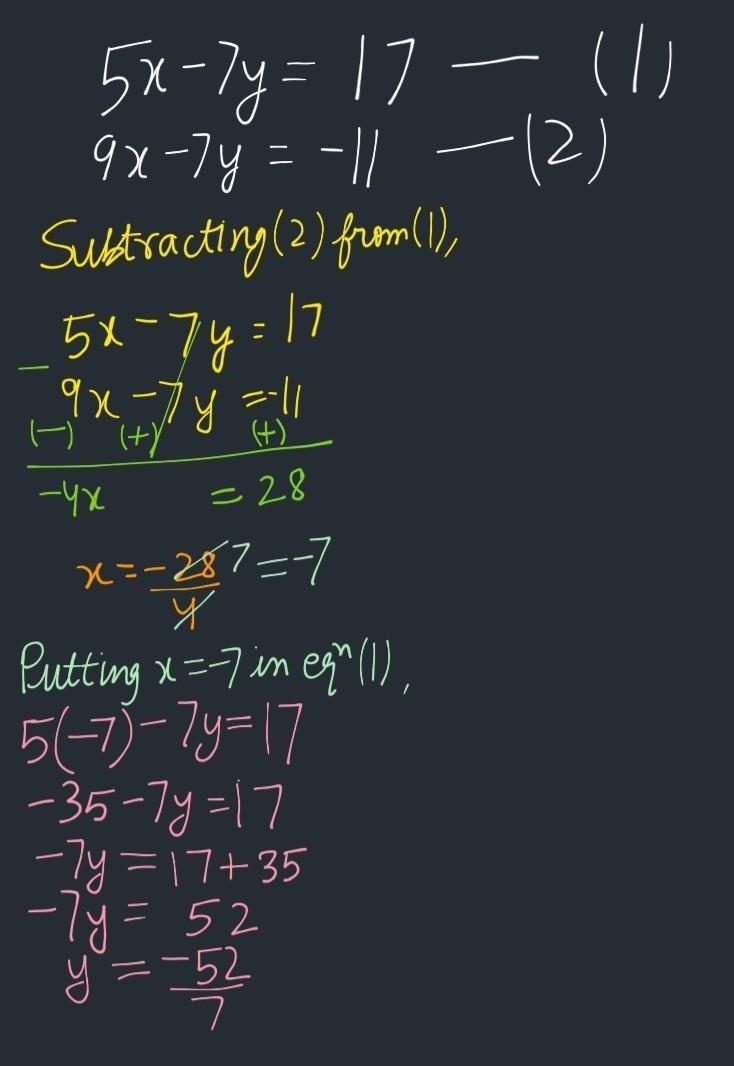 5x-7y= 17 — (1)
9x-7y = -11 — (2)
Subtracting (2) from (1),
5x-7y = 17
- 9x-7y =-11
(-) (+) (+)
-4x = 28
x=-28/4 7 =-7
Putting x=-7 in eqⁿ (1),
5(-7)-7y=17
-35-7y=17
-7y=17+35
-7y= 52
y = -52/7